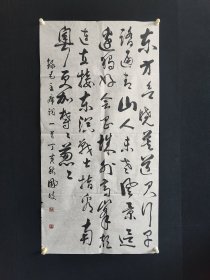 东方欲晓莫道君行早
踏遍青山人未老风景这
边独好会昌城外高峰颠
连直接东溟战士指看南
粤更加郁々葱々
录毛主席词一首丁亥秋